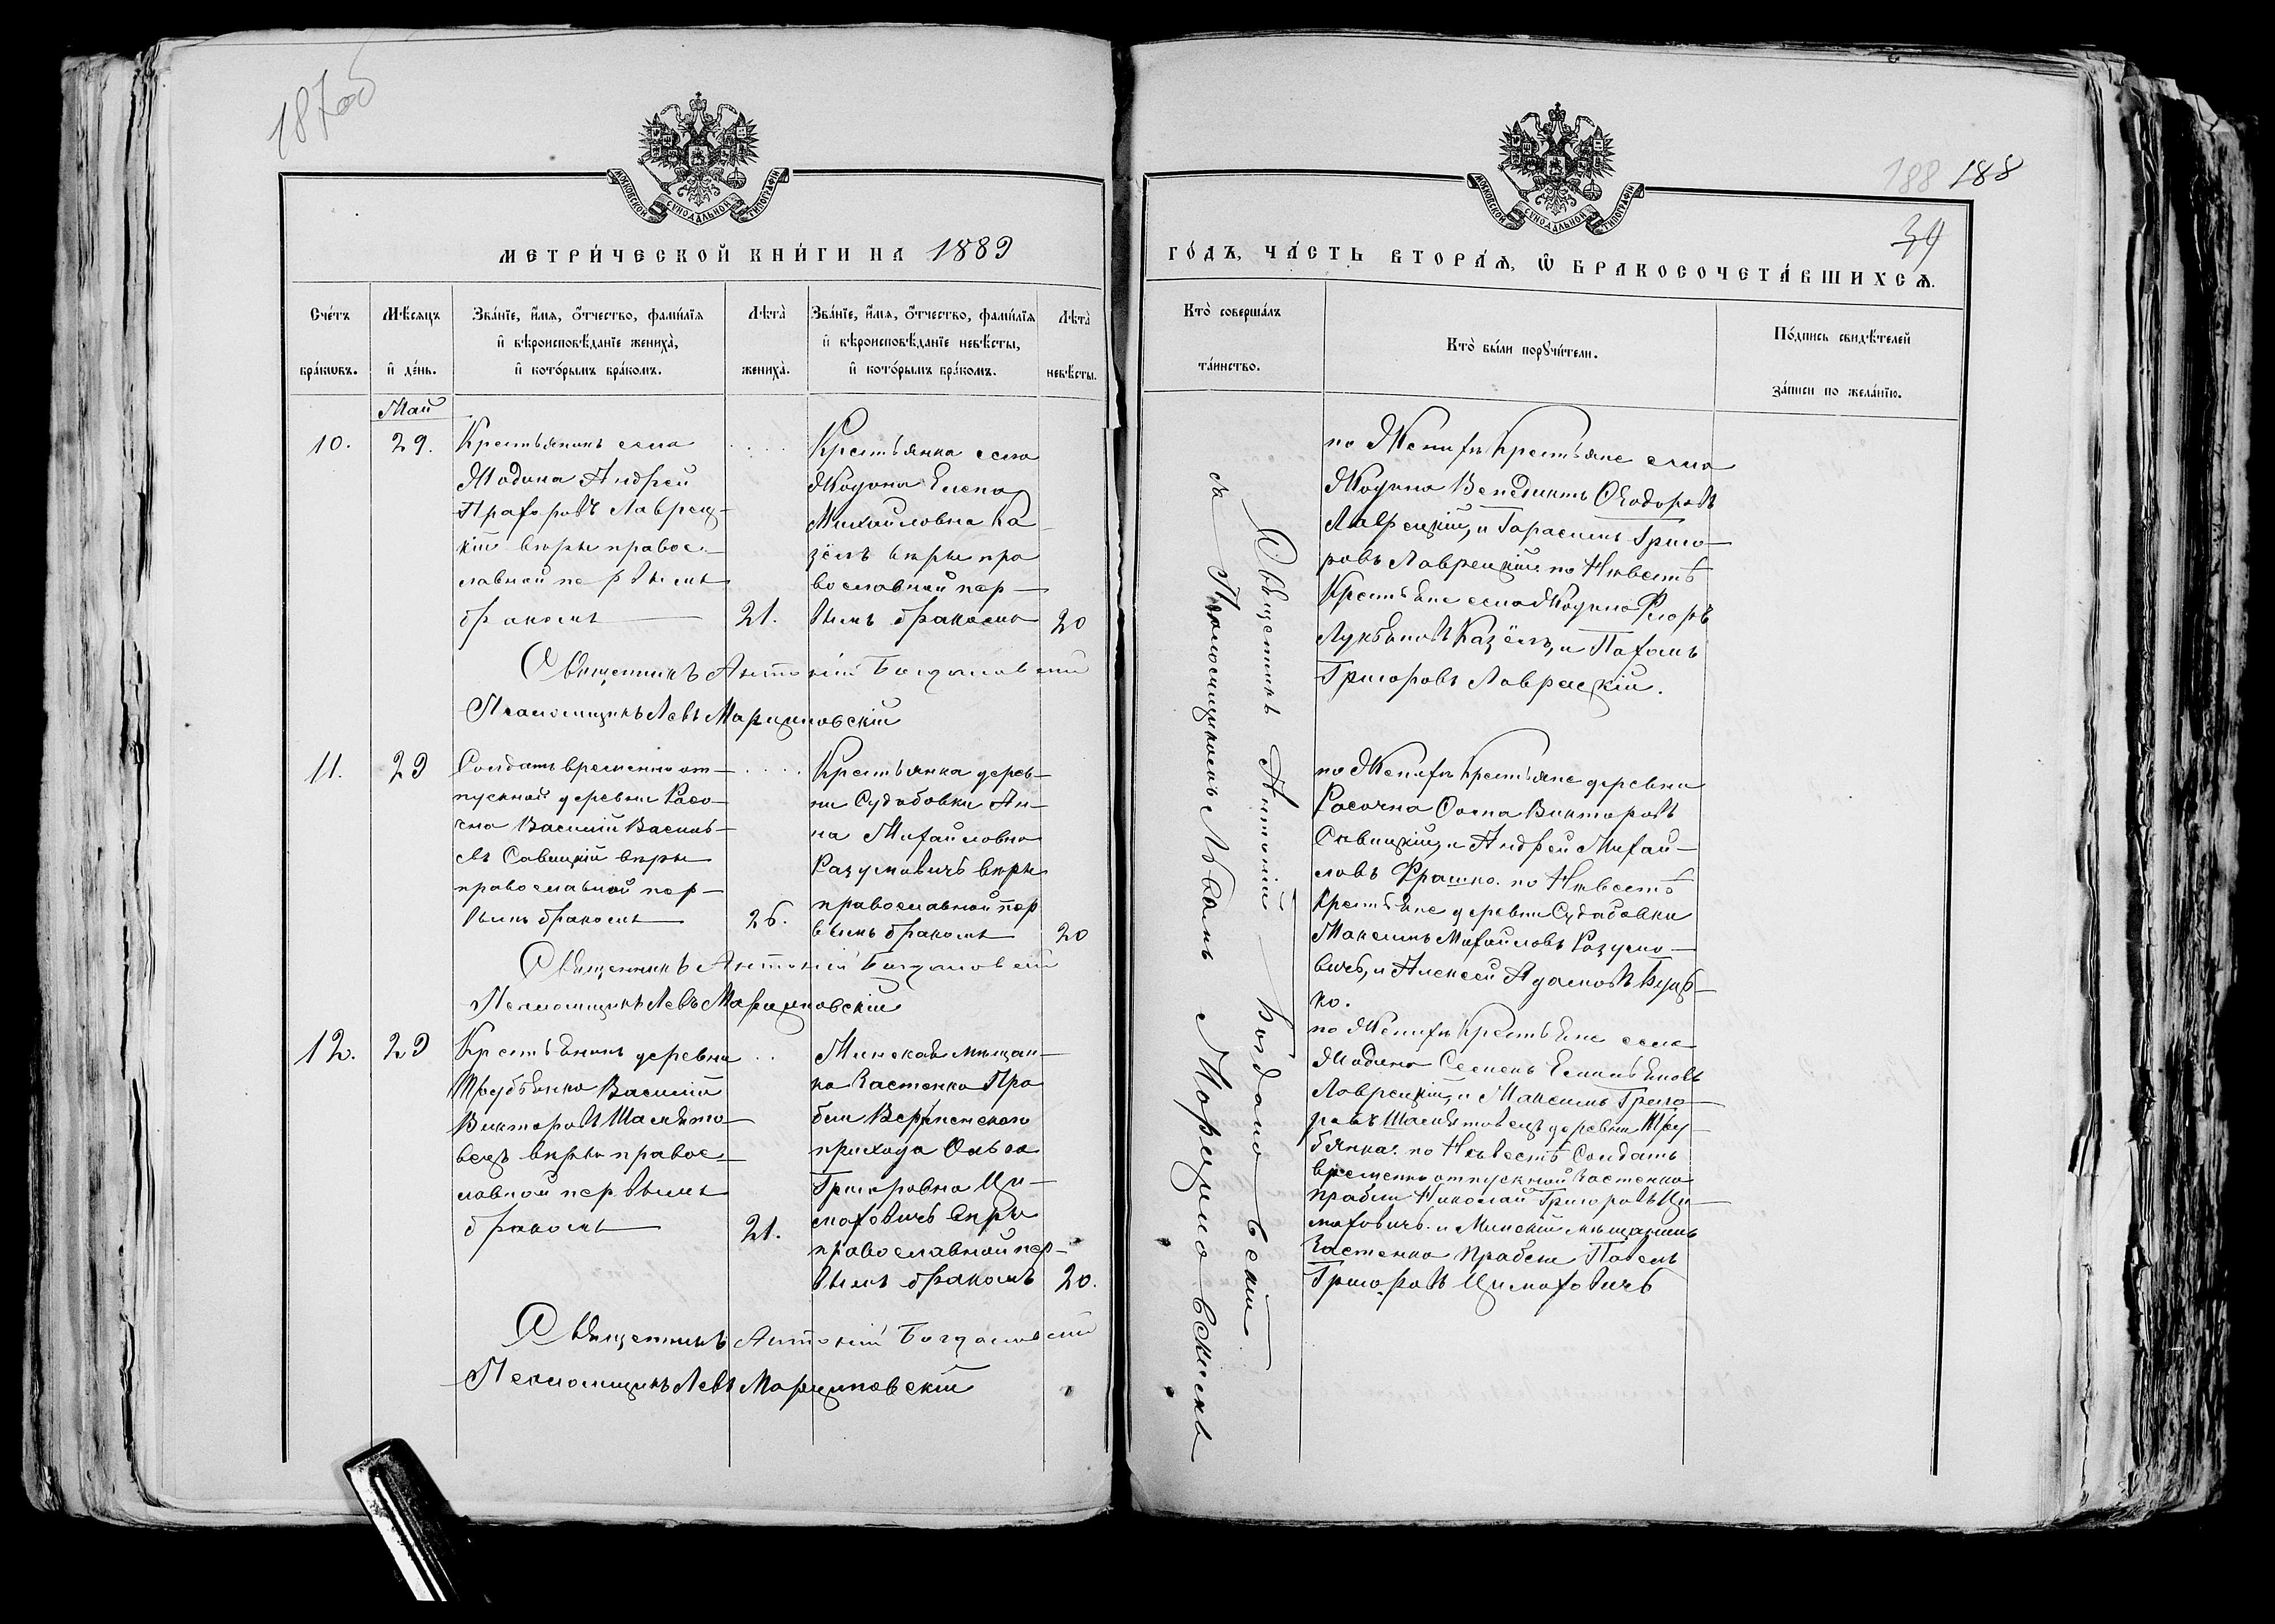 187об
МОСКОВСКОЙ СѴНОДАЛЬНОЙ ТИПОГРАФІИ
МЕТРИ́ЧЕСКОЙ КНИ́ГИ НА 1889
Сче́тъ бра́кѡвъ.
Мѣ́сяцъ и де́нь.
Зва́нїе, и́мя, о́тчество, фами́лїя и вѣроисповѣ́данїе жениха̀, и кото́рымъ бра́комъ.
Лѣта̀ жениха̀.
Зва́нїе, и́мя, о́тчество, фами́лїя и вѣроисповѣ́данїе невѣ́сты, и кото́рымъ бра́комъ.
Лѣта̀ невѣ́сты.
Май
10.
29.
Крестьянинъ села
Жодина Андрей
Прохоровъ Лаврец-
кій вѣры правос-
лавной первымъ
бракомъ
21.
Крестьянка села
Жодина Елена
Михайловна Ка
зёлъ вѣры пра
вославной пер-
вымъ бракомъ
20
Священникъ Антоній Богдановскій
Псаломщикъ Левъ Марциновскій
11.
29
Солдатъ временно от-
пускной деревни Расо-
хна Василій Василь-
евъ Савицкій вѣры
православной пер-
вымъ бракомъ
26.
Крестьянка дерев-
ни Судобовки Ан-
на Михайловна
Разумовичъ вѣры
православной пер
вымъ бракомъ
20
Священникъ Антоній Богдановскій
Псаломщикъ Левъ Марциновскій
12.
29
Крестьянинъ деревни
Трубянка Василій
Викторовъ Шаметo-
вецъ вѣры правос-
лавной первымъ
бракомъ
21.
Минская мѣщан-
ка Застенка Пра
бели
прихода Ольга
Григоровна Ци-
моховичъ вѣры
православной пер-
вымъ бракомъ
20.
Священникъ Антоній Богдановскій
Псаломщикъ Левъ Марциновскій
188 188
34
МОСКОВСКОЙ СѴНОДАЛЬНОЙ ТИПОГРАФІИ
ГО́ДЪ, ЧА́СТЬ ВТОРА́Ѧ, Ѽ БРАКОСОЧЕТА́ВШИХСѦ.
Кто̀ соверша́лъ та́инство.
Кто̀ бы́ли порꙋчи́тели.
По́дпись свидѣ́телей за́писи по жела́нїю.
Священникъ Антоній Богдановскій
съ Псаломщикомъ Львомъ Марциновскимъ
по Женихѣ Крестьяне села
Жодина Венедиктъ Ѳеодоровъ
Лаврецкій, и Гарасимъ Григо-
ровъ Лаврецкій. по Нивестѣ
Крестьяне села Жодина Флоръ
Лукьяновъ Казёлъ, и Пахомъ
Григоровъ Лаврецкій.
по Женихѣ Крестьяне деревни
Расохна Фома Викторовъ
Савицкій, и Андрей Михай-
ловъ Фрашко. по Нивестѣ
Крестьяне деревни Судобовки
Максимъ Михайловъ Разумо-
вичъ, и Алексей Адамовъ
ко.
по Женихѣ Крестьяне села
Жодина Семенъ Емильяновъ
Лаврецкій, и Максимъ Григо-
ровъ Шаметовецъ деревни Тру-
бянка. по Нивестѣ Солдатъ
временно отпускной Застенка
Прабели Николай Григоровъ Ци-
моховичъ. и Минскій мѣщанинъ
Застенка Прабели Павелъ
Григоровъ Цимоховичъ